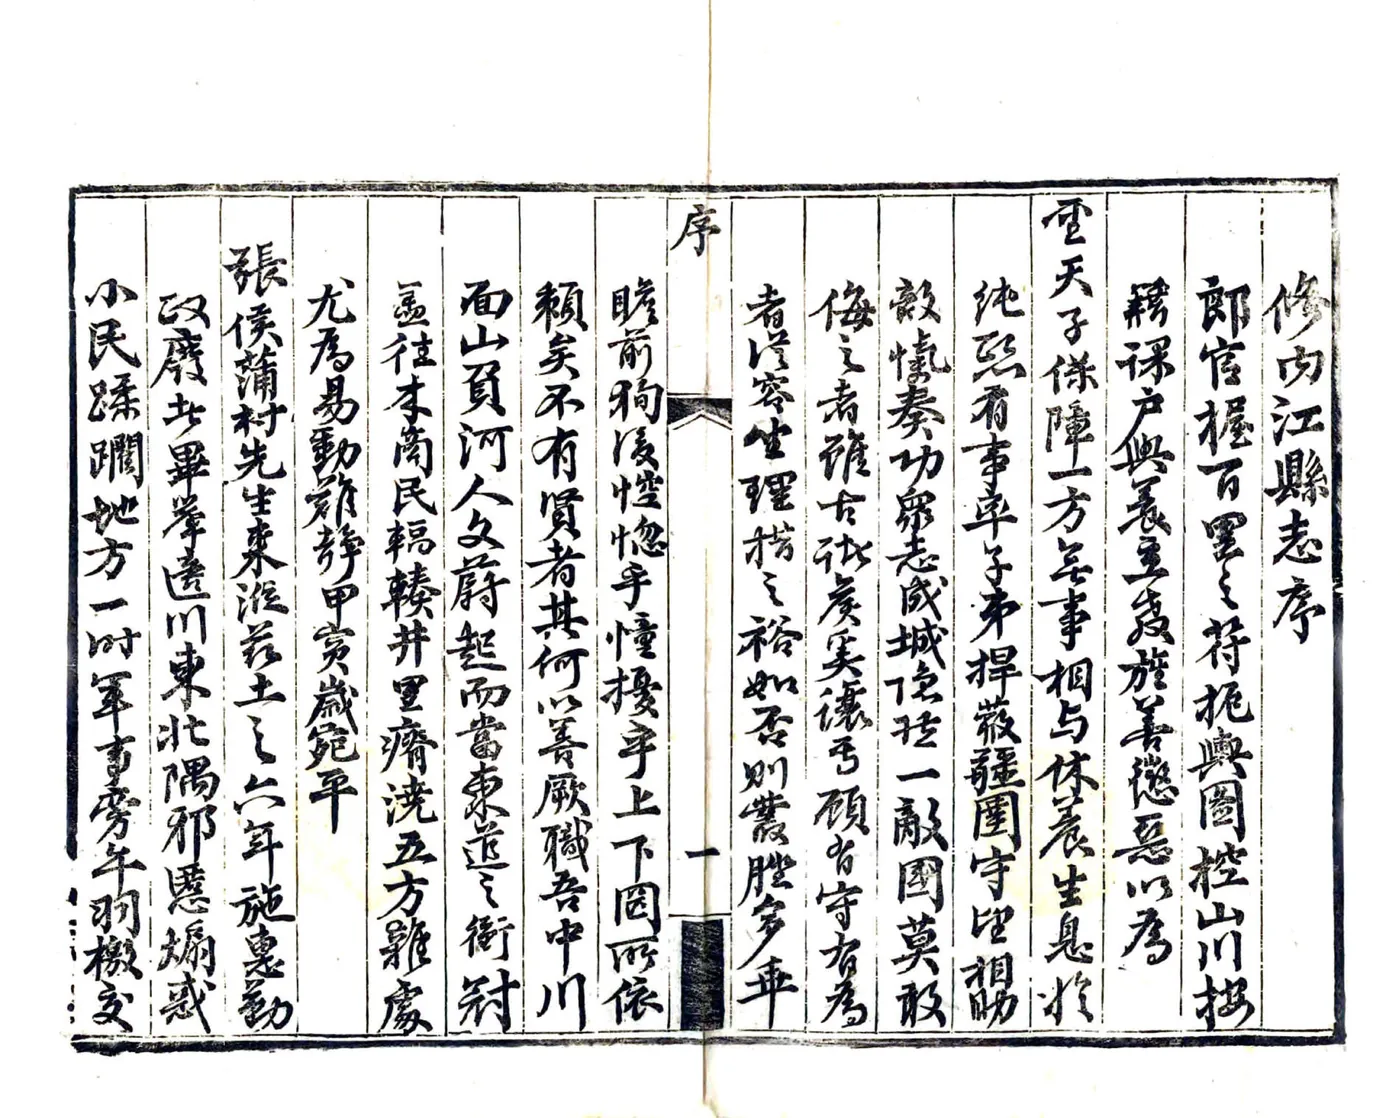 修內江縣志序
郎官握百里之符扼輿圖控山川按
籍課戶興養立教旌善懲惡以爲
聖天子保障一方無事相与休養生息於
純熙有事率子弟捍蔽疆圉守望相助
敵愾奏功衆志成城隐然一敵國莫敢
侮之者雖古諸侯奚讓焉顧有守有爲
者從容坐理措之裕如否則叢脞多乖
序
一
瞻前狥後悾惚乎憧擾乎上下罔所依
賴矣不有賢者其何以善厥職吾中川
面山負河人文蔚起而當東道之衝冠
盖往來商民輻輳井里瘠澆五方雜處
尤爲易動難靜甲寅歲宛平
張侯蒲村先生來涖茲土之六年施惠勤
政廢㪽畢舉適川東北隅邪慝煽惑
小民蹂躪地方一时军事旁午羽檄交